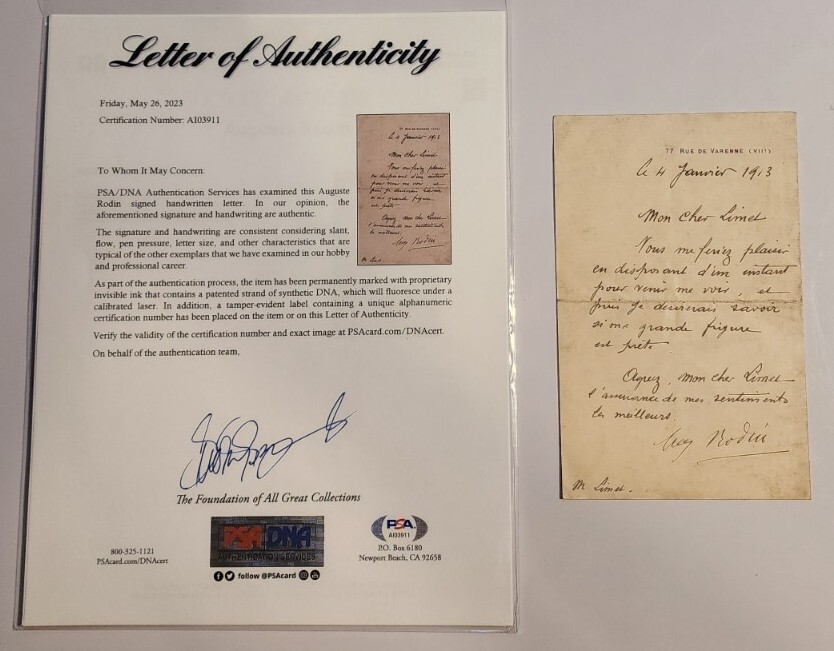 Letter of Authenticity
Friday, May 26, 2023
Certification Number: AI03911
To Whom It May Concern:
PSA/DNA Authentication Services has examined this Auguste
Rodin signed handwritten letter. In our opinion, the
aforementioned signature and handwriting are authentic.
The signature and handwriting are consistent considering slant,
flow, pen pressure, letter size, and other characteristics that are
typical of the other exemplars that we have examined in our hobby
and professional career.
As part of the authentication process, the item has been permanently marked with proprietary
invisible ink that contains a patented strand of synthetic DNA, which will fluoresce under a
calibrated laser. In addition, a tamper-evident label containing a unique alphanumeric
certification number has been placed on the item or on this Letter of Authenticity.
Verify the validity of the certification number and exact image at PSAcard.com/DNAcert.
On behalf of the authentication team,
The Foundation of All Great Collections
800-325-1121
PSAcard.com/DNAcert
PSA DNA
AUTHENTICATION SERVICES
follow @PSAcard
PSA
AI03911
P.O. Box 6180
Newport Beach, CA 92658
77 RUE DE VARENNE (VIIe)
le 4 Janvier 1913
Mon cher Limet
Vous me feriez plaisir
en disposant d'un instant
pour venir me voir, et
puis je desirerais savoir
si ma grande figure
est prete
Agreez, mon cher Limet
l'assurance de mes sentiments
les meilleurs.
Aug Rodin
M Limet.